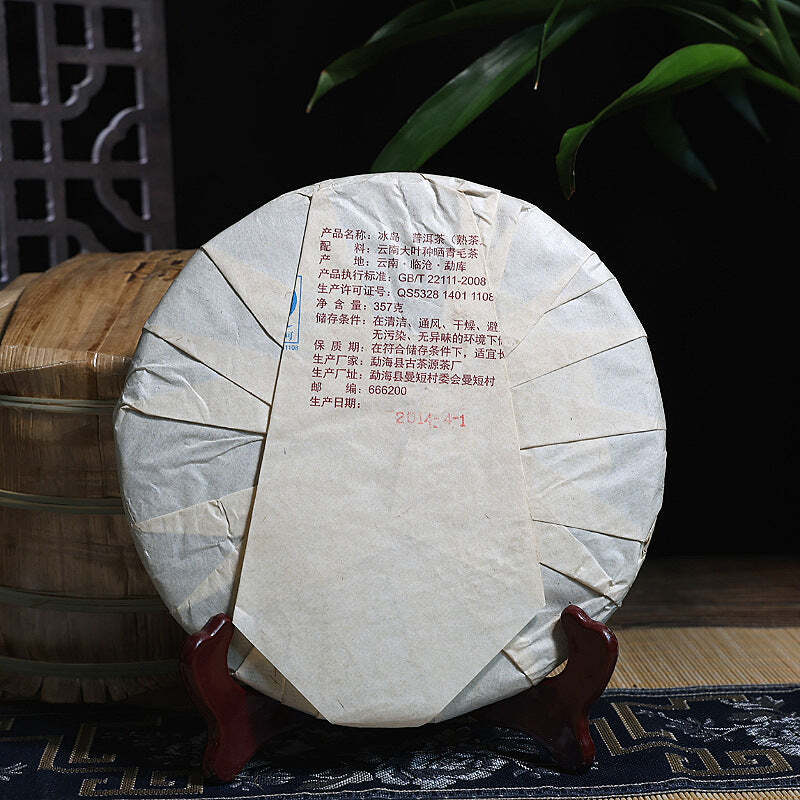 产品名称：冰岛 普洱茶（熟茶
配 料：云南大叶种晒青毛茶
产 地：云南·临沧·勐库
产品执行标准：GB/T 22111-2008
生产许可证号：QS5328 1401 1108
净 含 量：357克
储存条件：在清洁、通风、干燥、避
无污染、无异味的环境下
保 质 期：在符合储存条件下，适宜长
生产厂家：勐海县古茶源茶厂
生产厂址：勐海县曼短村委会曼短村
邮 编：666200
生产日期：
2014-4-1
1108